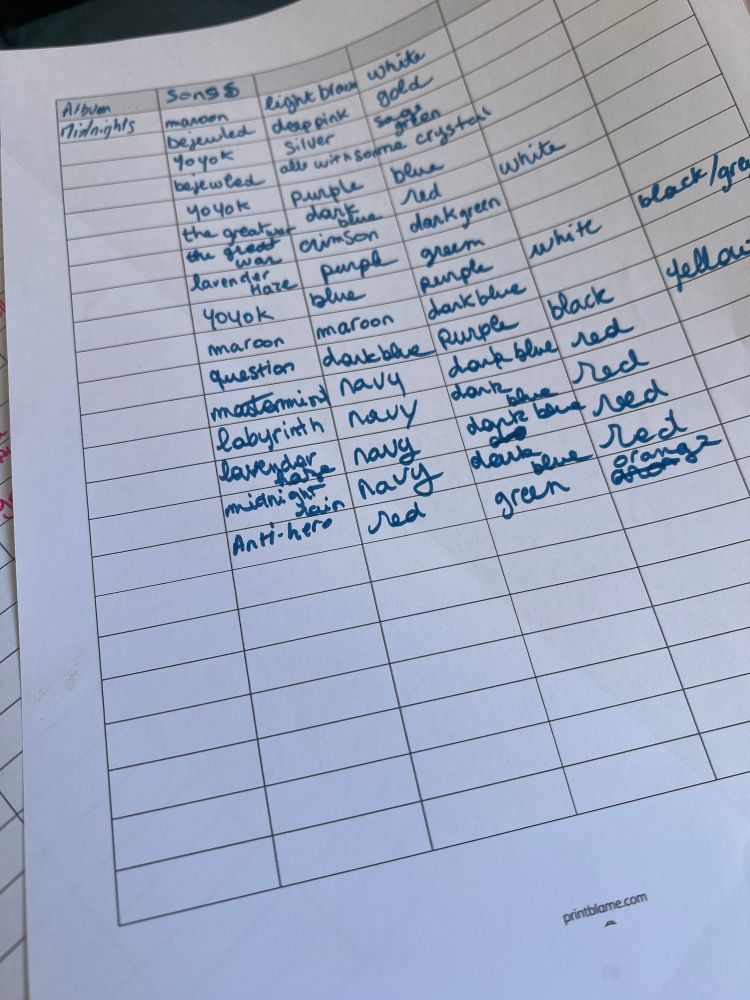 Album Songs
Midnights maroon light brown white
bejeweled deep pink gold
yoyok silver sage green
bejeweled all with some crystal
yoyok purple blue white
the great war dark blue red
the great war crimson dark green
lavender haze purple green white black/gre
yoyok blue purple
maroon maroon dark blue black yellow
question dark blue purple red
mastermind navy dark blue red
labyrinth navy dark blue red
lavender haze navy dark blue red
midnight rain navy green orange
Anti-hero red
printblame.com